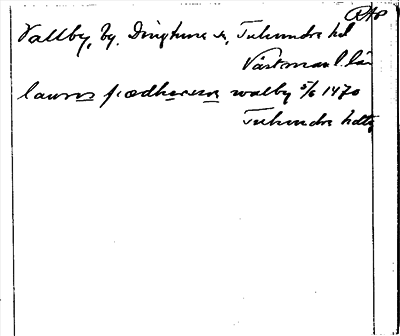 RAP
Vallby, by. Dingtuna sn, Tuhundra hd
Västmanl. län
laurens walby 5/6 1470
Tuhundra hdtg